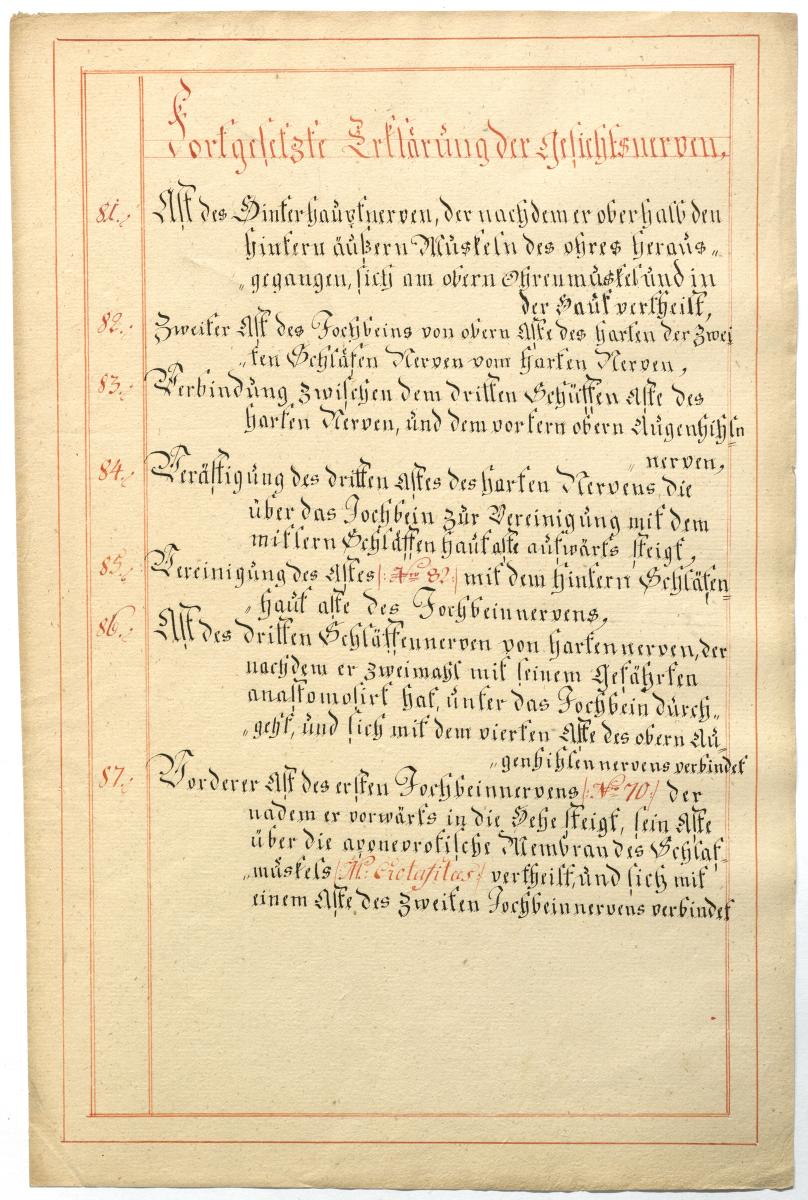 Fortgesetzte Erklärung der Gesichtsnerven,
81. Ast des Hinterhauptnerven, der nachdem er oberhalb den
hintern äußern Muskeln des ohres heraus„
„gegangen, sich am obern Ohrenmuskel und in
der Haut vertheilt,
82. Zweiter Ast des Jochbeins von obern Aste des harten der Zwei
„ten Schläfen Nerven vom harten Nerven,
83. Verbindung zwischen dem dritten Schläffen Aste des
harten Nerven, und dem vortern obern Augenhihln
„nerven,
84. Verästigung des dritten Astes des harten Nervens, die
über das Jochbein zur Vereinigung mit dem
mitlern Schläffenhautaste aufwärts steigt,
85. Vereinigung des Astes /: No 82 :/ mit dem hintern Schläfen=
„haut aste des Jochbeinnervens,
86. Ast des dritten Schläffennerven von hartennerven, der
nachdem er zweimahl mit seinem Gefährten
anastomosirt hat, unter das Jochbein durch„
„geht, und sich mit dem vierten Aste des obern Au„
„genhihlennervens verbindet
87. Vorderer Ast des ersten Jochbeinnervens /: No 70 :/ der
nadem er vorwärts in die Hehe steigt, sein Aste
über die aponevrotische Membran des Schlaf„
„muskels /: M: Crotafitus :/ vertheilt, und sich mit
einem Aste des Zweiten Jochbeinnervens verbindet